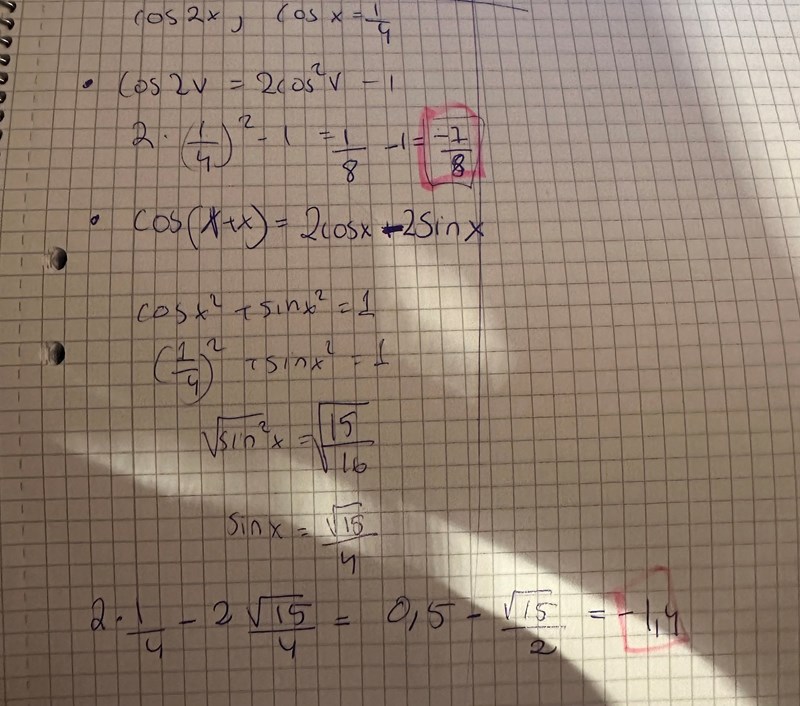 cos2x, cosx = 1/4
• cos2v = 2cos²v - 1
2 · (1/4)² - 1 = 1/8 - 1 = -7/8
• cos(x+x) = 2cosx - 2sinx
cosx² + sinx² = 1
(1/4)² + sinx² = 1
√sin²x = √15/√16
sinx = √15/4
2 · 1/4 - 2 √15/4 = 0,5 - √15/2 = -1,4